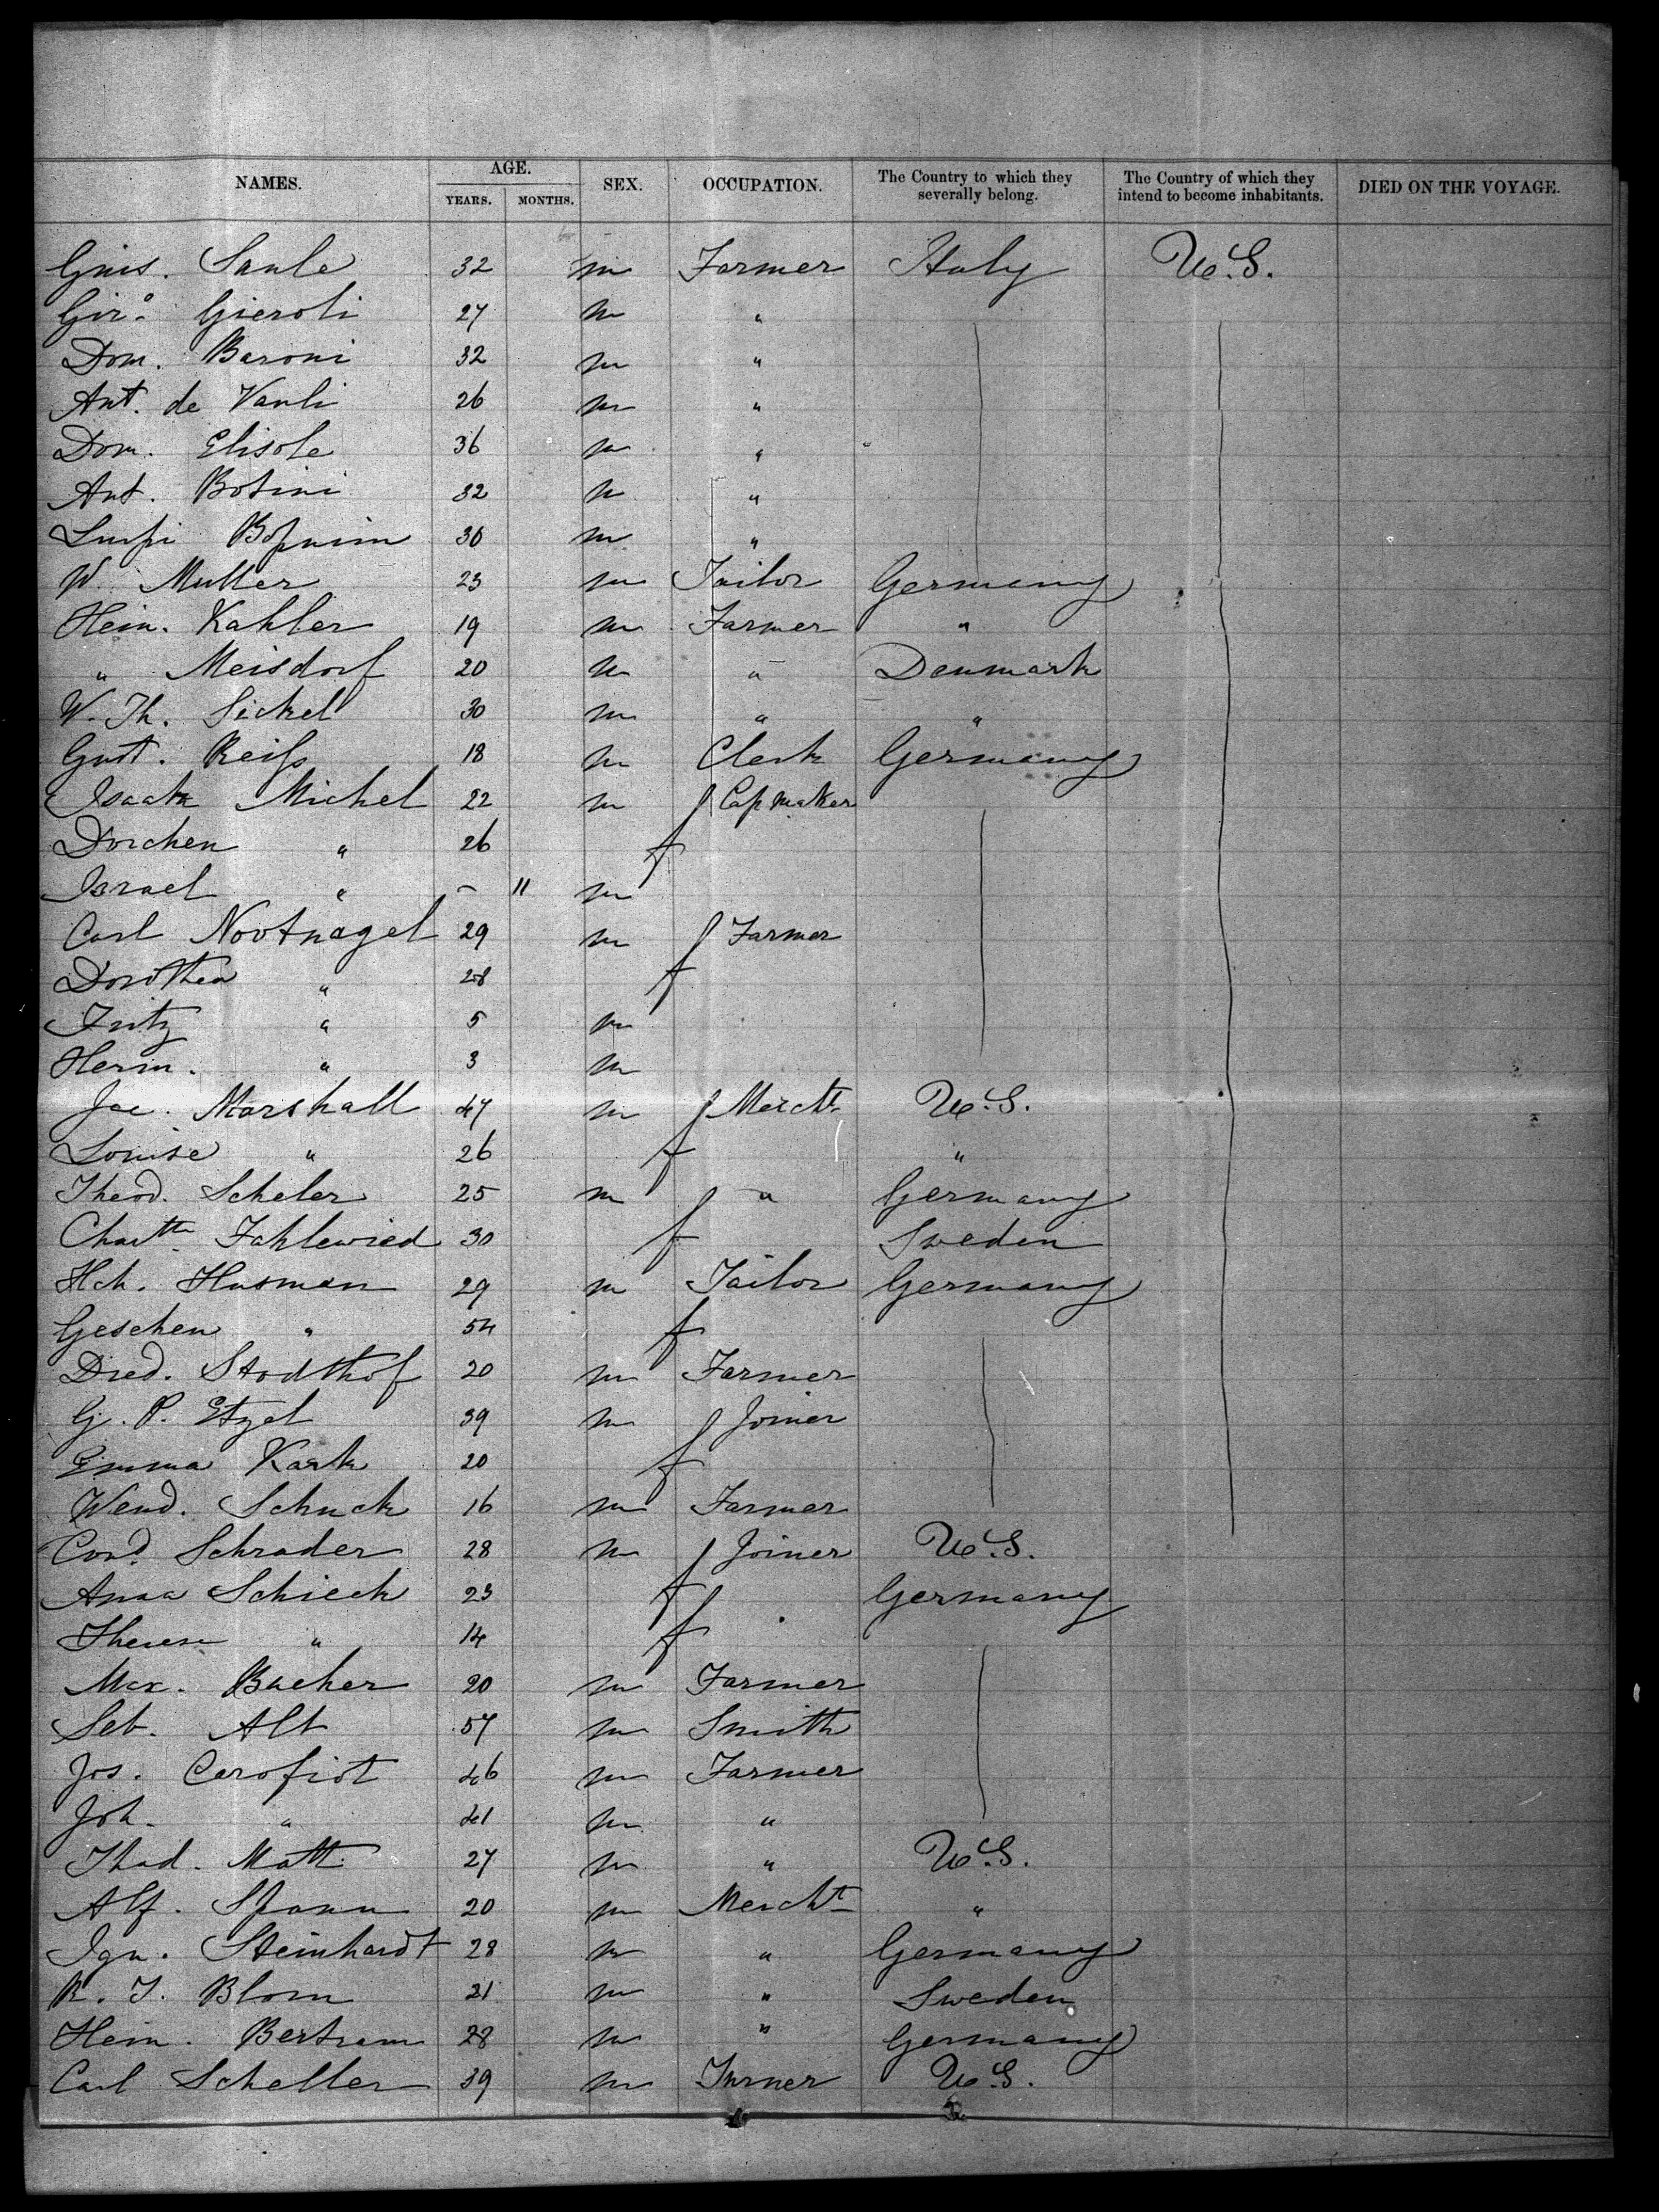 NAMES. AGE. SEX. OCCUPATION. The Country to which they severally belong. The Country of which they intend to become inhabitants. DIED ON THE VOYAGE.
YEARS. MONTHS.
Gius. Saule 32 m Farmer Italy U.S.
Giro. Gieroli 27 m "
Dom. Baroni 32 m "
Ant. de Vanli 26 m "
Dom. Elisole 36 m "
Ant. Botini 32 m "
30 m "
W. Muller 23 m Tailor Germany
Hein. Kahler 19 m Farmer "
" Meisdorf 20 m " Denmark
W. Th. Sickel 30 m " "
Gust. Reiss 18 m Clerk Germany
Isaak Michel 22 m Capmaker
Dorchen " 26 f
Israel " – 11 m
Carl Nootnagel 29 m Farmer
Dorothea " 28 f
Fritz " 5 m
Herm. " 3 m
Jac. Marshall 47 m Mercht U.S.
Louise " 26 f "
Theod. Scheler 25 m " Germany
Chartte Fahlewied 30 f Sweden
Hch. Husman 29 m Tailor Germany
Geschen " 54 f
Died. Stodthof 20 m Farmer
G. P. Etzel 39 m Joiner
Emma Kark 20 f
Wend. Schuck 16 m Farmer
Cond. Schrader 28 m Joiner U.S.
Anna Schieck 23 f Germany
Therese " 14 f
Max. Bacher 20 m Farmer
Seb. Alt 57 m Smith
Jos. Cerofiot 46 m Farmer
Joh. " 41 m "
Thad. Matt 27 m " U.S.
Alf. Spann 20 m Mercht "
Ign. Steinhardt 28 m " Germany
R. J. Blom 21 m " Sweden
Hein. Bertram 28 m " Germany
Carl Scheller 39 m Turner U.S.